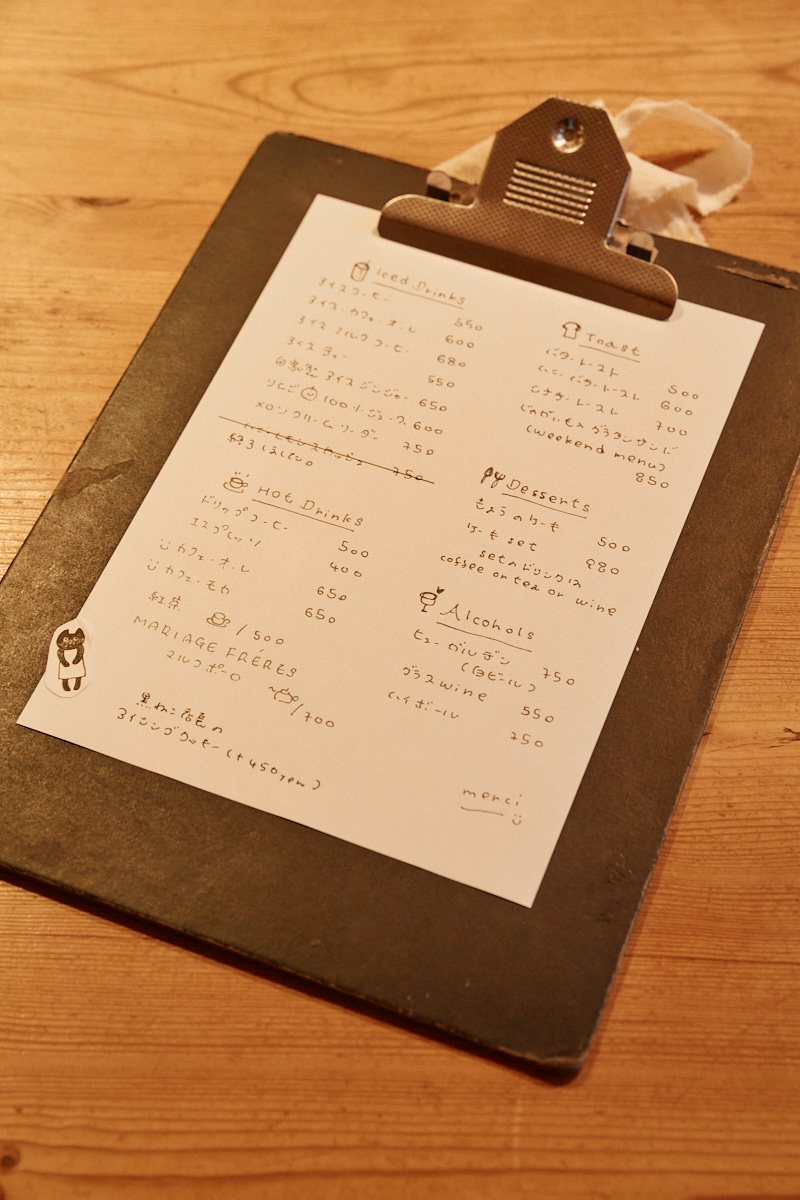 Iced Drinks
アイスコーヒー 550
アイス・カフェ・オ・レ 600
アイスミルクコーヒー 680
アイスティー 550
自家製アイスジンジャー 650
りんご 100%ジュース 600
メロンクリームソーダー 750
750
終了しました。
Hot Drinks
ドリップコーヒー 500
エスプレッソ 400
カフェ・オ・レ 650
カフェ・モカ 650
紅茶 /500
MARIAGE FRÉRES
マルコポーロ /700
黒ねこ店長の
アイシングクッキー (+450yen)
Toast
バタートースト 500
ハニーバタートースト 600
シナモントースト 700
じゃがいもグラタンサンド
(weekend menu) 850
Desserts
きょうのケーキ 500
ケーキ set 880
setのドリンクは
coffee or tea or wine
Alcohols
ヒューガルデン 750
(白ビール)
グラスwine 550
ハイボール 750
merci